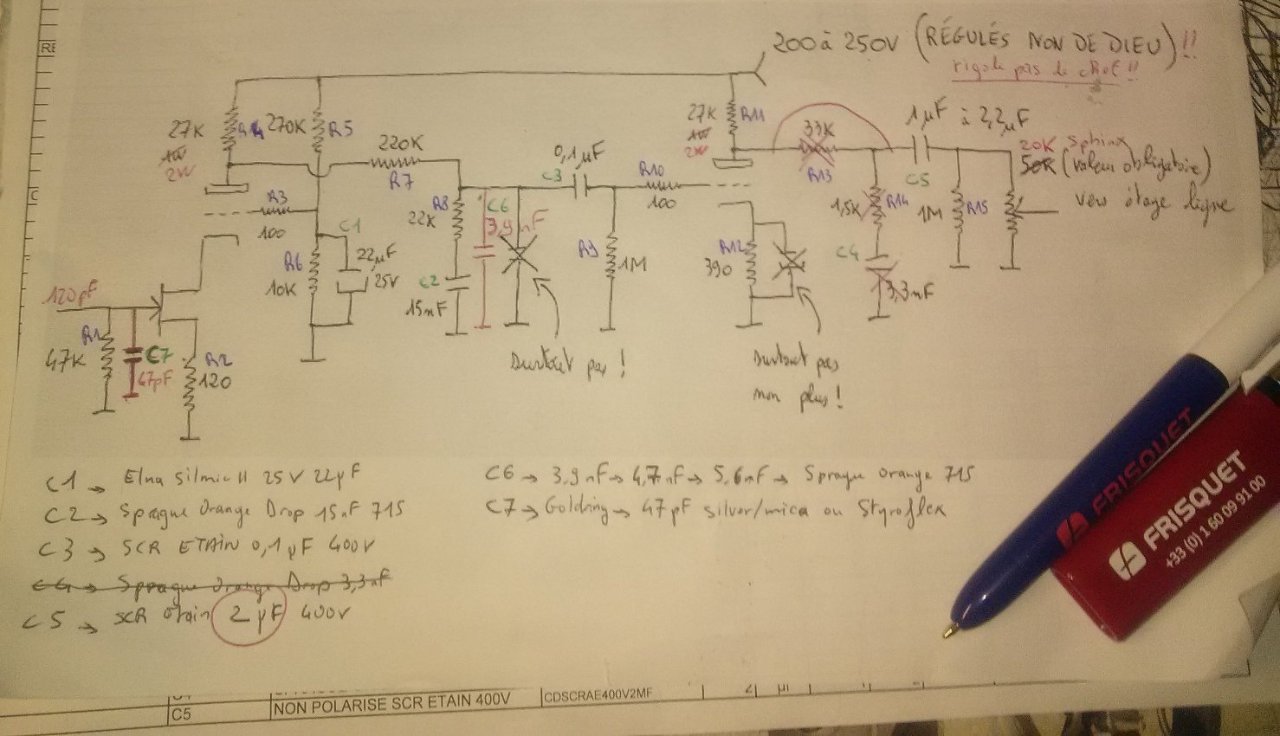 200 à 250V (RÉGULÉS NON DE DIEU)!!
rigole pas le chef!!
27K
1W
2W
R4
270K
R5
220K
R7
R3
100
C1
22µF
25V
R6
10K
R8
22K
C2
15nF
C6
3,9nF
0,1µF
C3
R9
1M
R10
100
27K
1W
2W
R11
33K
R13
1µF à 2,2µF
C5
20K sphinx
50K (valeur obligatoire)
vers étage ligne
1,5K
R14
1M
R15
C4
3,3nF
R12
390
120pF
R1
47K
C7
47pF
R2
120
Surtout pas!
Surtout pas
non plus!
C1 → Elna Silmic II 25V 22µF
C2 → Sprague Orange Drop 15nF 715
C3 → SCR ETAIN 0,1µF 400V
C4 → Sprague Orange Drop 3,3nF
C5 → SCR étain 2µF 400V
C6 → 3,9nF → 4,7nF → 5,6nF → Sprague Orange 715
C7 → Goldring → 47pF silver/mica ou Styroflex
FRISQUET
FRISQUET
+33 (0) 1 60 09 91 00
C5
NON POLARISE SCR ETAIN 400V
CDSCRAE400V2MF